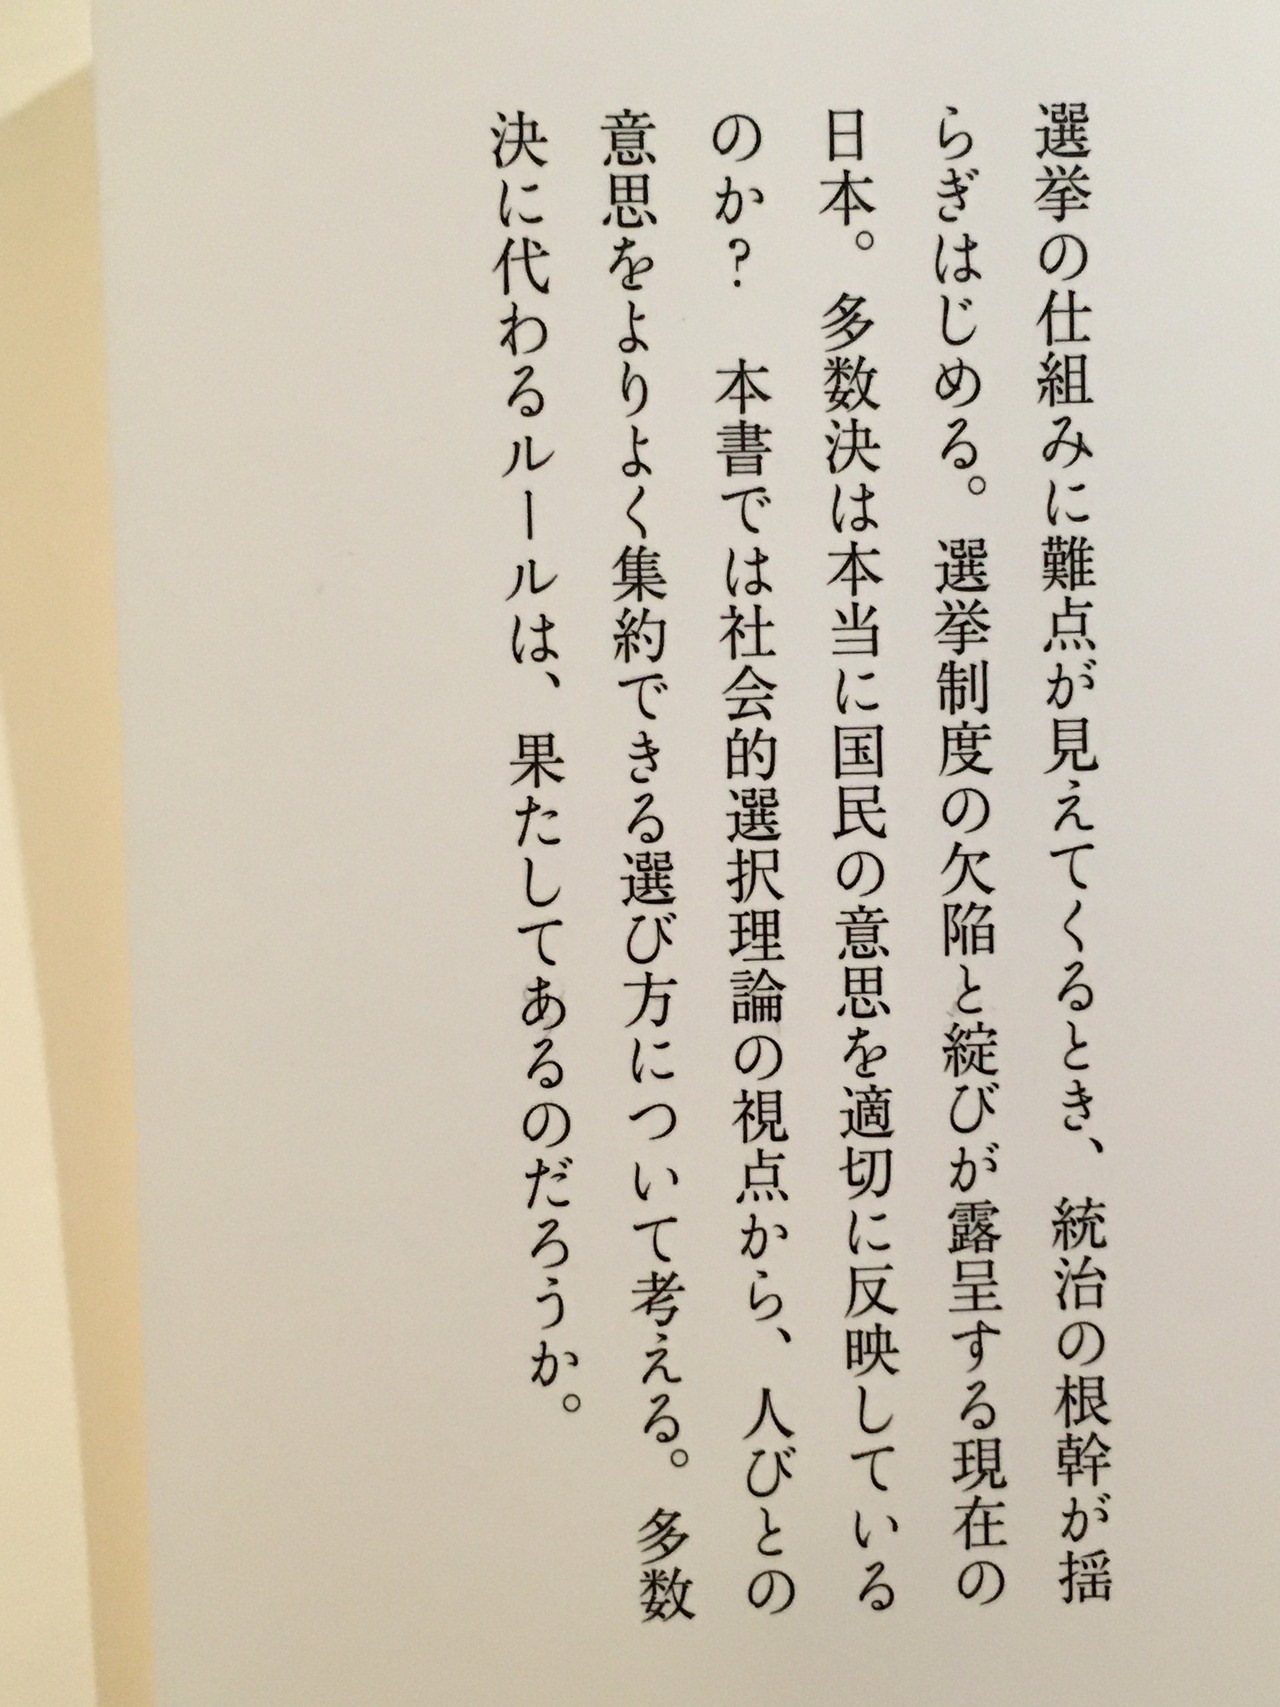 選挙の仕組みに難点が見えてくるとき、統治の根幹が揺
らぎはじめる。選挙制度の欠陥と綻びが露呈する現在の
日本。多数決は本当に国民の意思を適切に反映している
のか？　本書では社会的選択理論の視点から、人びとの
意思をよりよく集約できる選び方について考える。多数
決に代わるルールは、果たしてあるのだろうか。